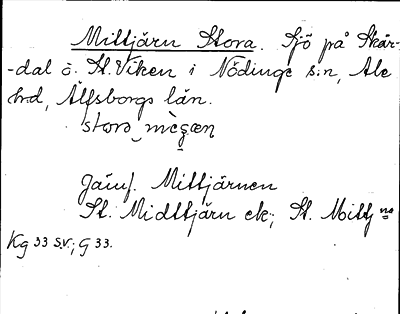 Mittjärn Stora. Sjö på Skår-
-dal o. St. Viken i Nödinge s:n, Ale
h:d, Älfsborgs län.
Jämf. Mittjärnen
St. Midttjärn ek; St. Mitttj
Kg 33 s.v.; G 33.